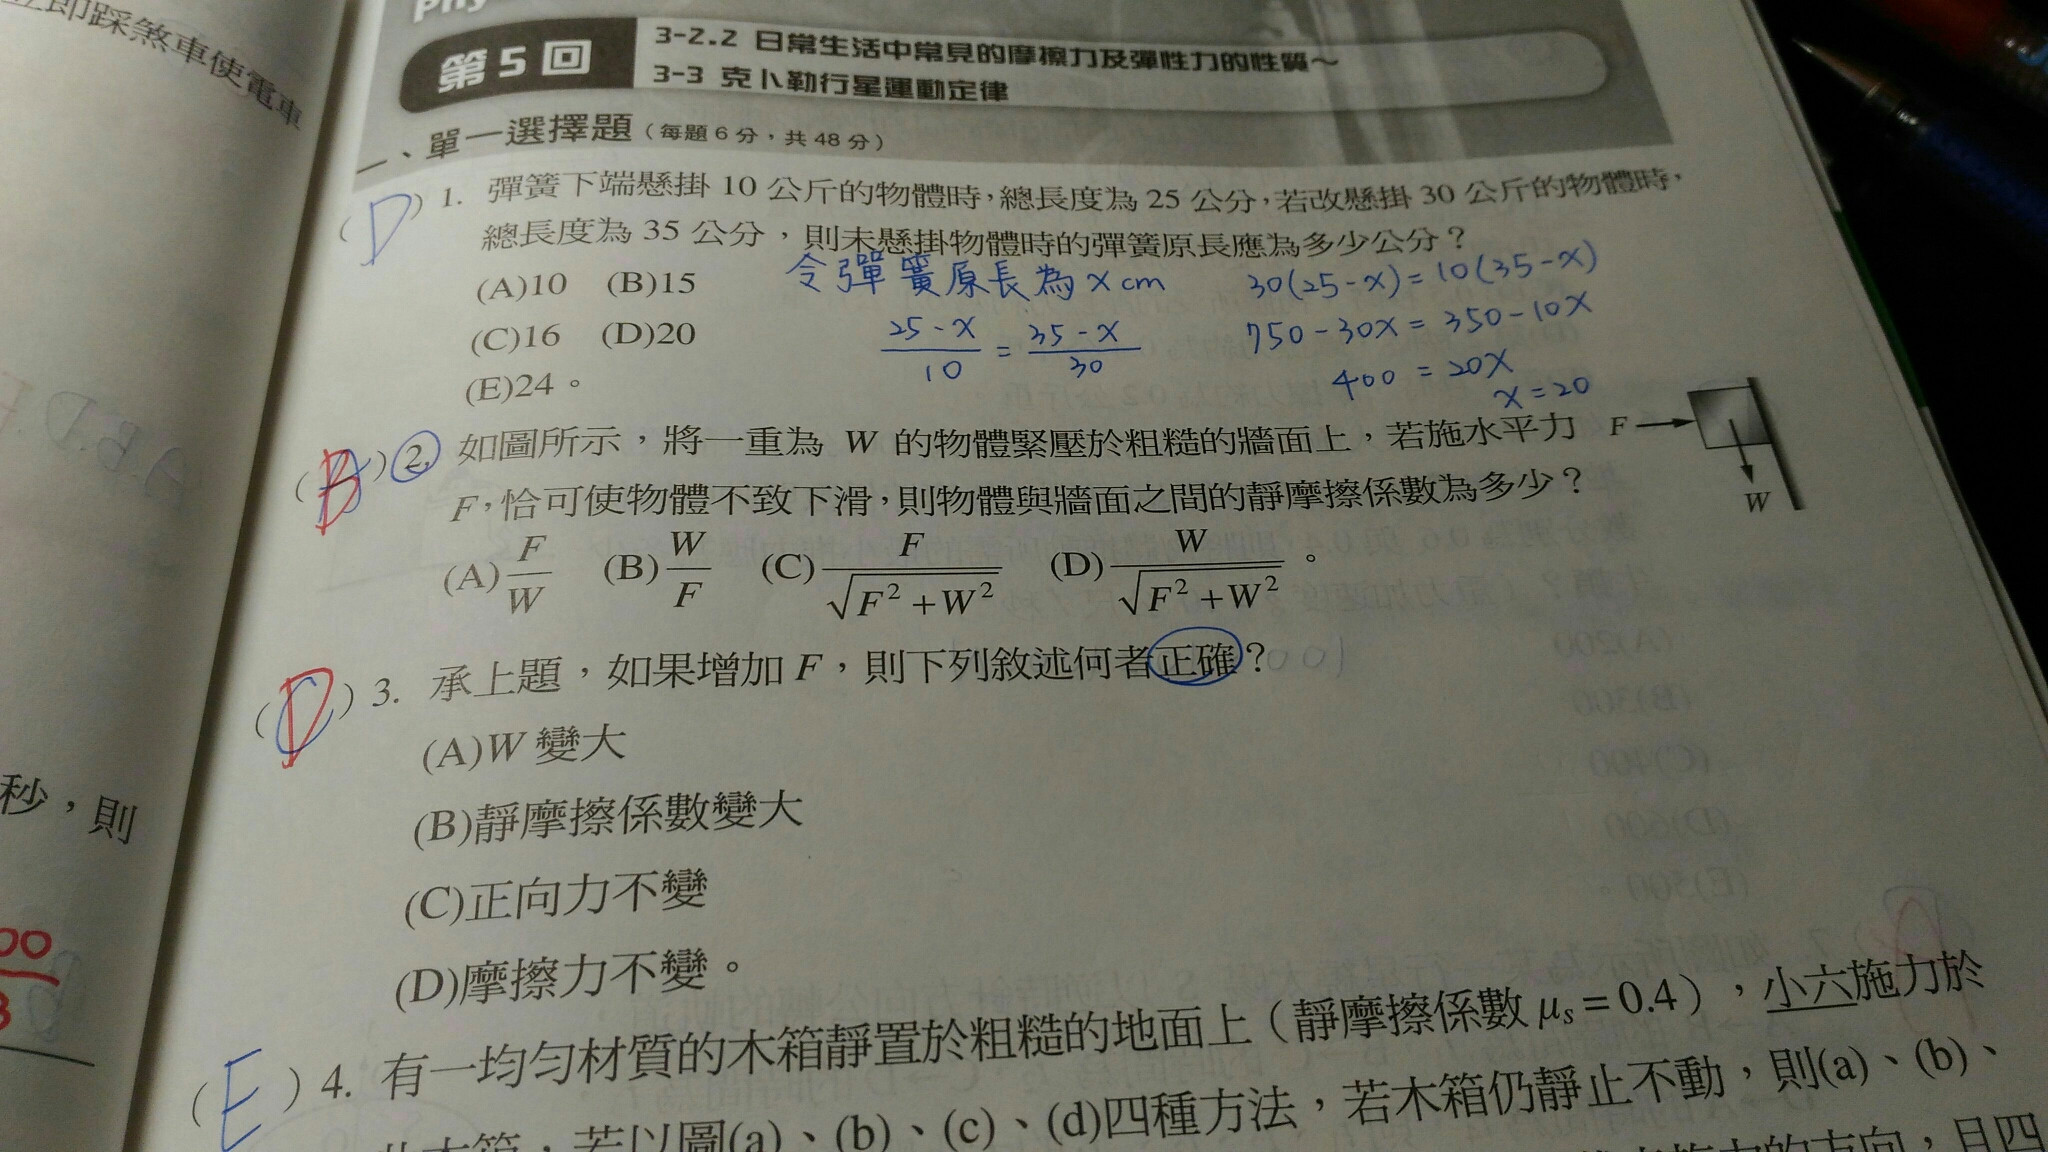 立即踩煞車使電車
秒，則
00
3
Phy
第5回
3-2.2 日常生活中常見的摩擦力及彈性力的性質～
3-3 克卜勒行星運動定律
一、單一選擇題（每題6分，共48分）
(D) 1. 彈簧下端懸掛10公斤的物體時，總長度為25公分，若改懸掛30公斤的物體時，
總長度為35公分，則未懸掛物體時的彈簧原長應為多少公分？
(A)10 (B)15
(C)16 (D)20
(E)24。
令彈簧原長為x cm
(25-x)/10 = (35-x)/30
30(25-x)=10(35-x)
750-30x=350-10x
400=20x
x=20
(B) 2. 如圖所示，將一重為 W 的物體緊壓於粗糙的牆面上，若施水平力
F，恰可使物體不致下滑，則物體與牆面之間的靜摩擦係數為多少？
(A) F/W (B) W/F (C) F/√(F²+W²) (D) W/√(F²+W²)。
F
W
(D) 3. 承上題，如果增加F，則下列敘述何者正確？
(A)W變大
(B)靜摩擦係數變大
(C)正向力不變
(D)摩擦力不變。
(E) 4. 有一均勻材質的木箱靜置於粗糙的地面上（靜摩擦係數 μs=0.4），小六施力於
此木箱，若以圖(a)、(b)、(c)、(d)四種方法，若木箱仍靜止不動，則(a)、(b)、
的方向，且四